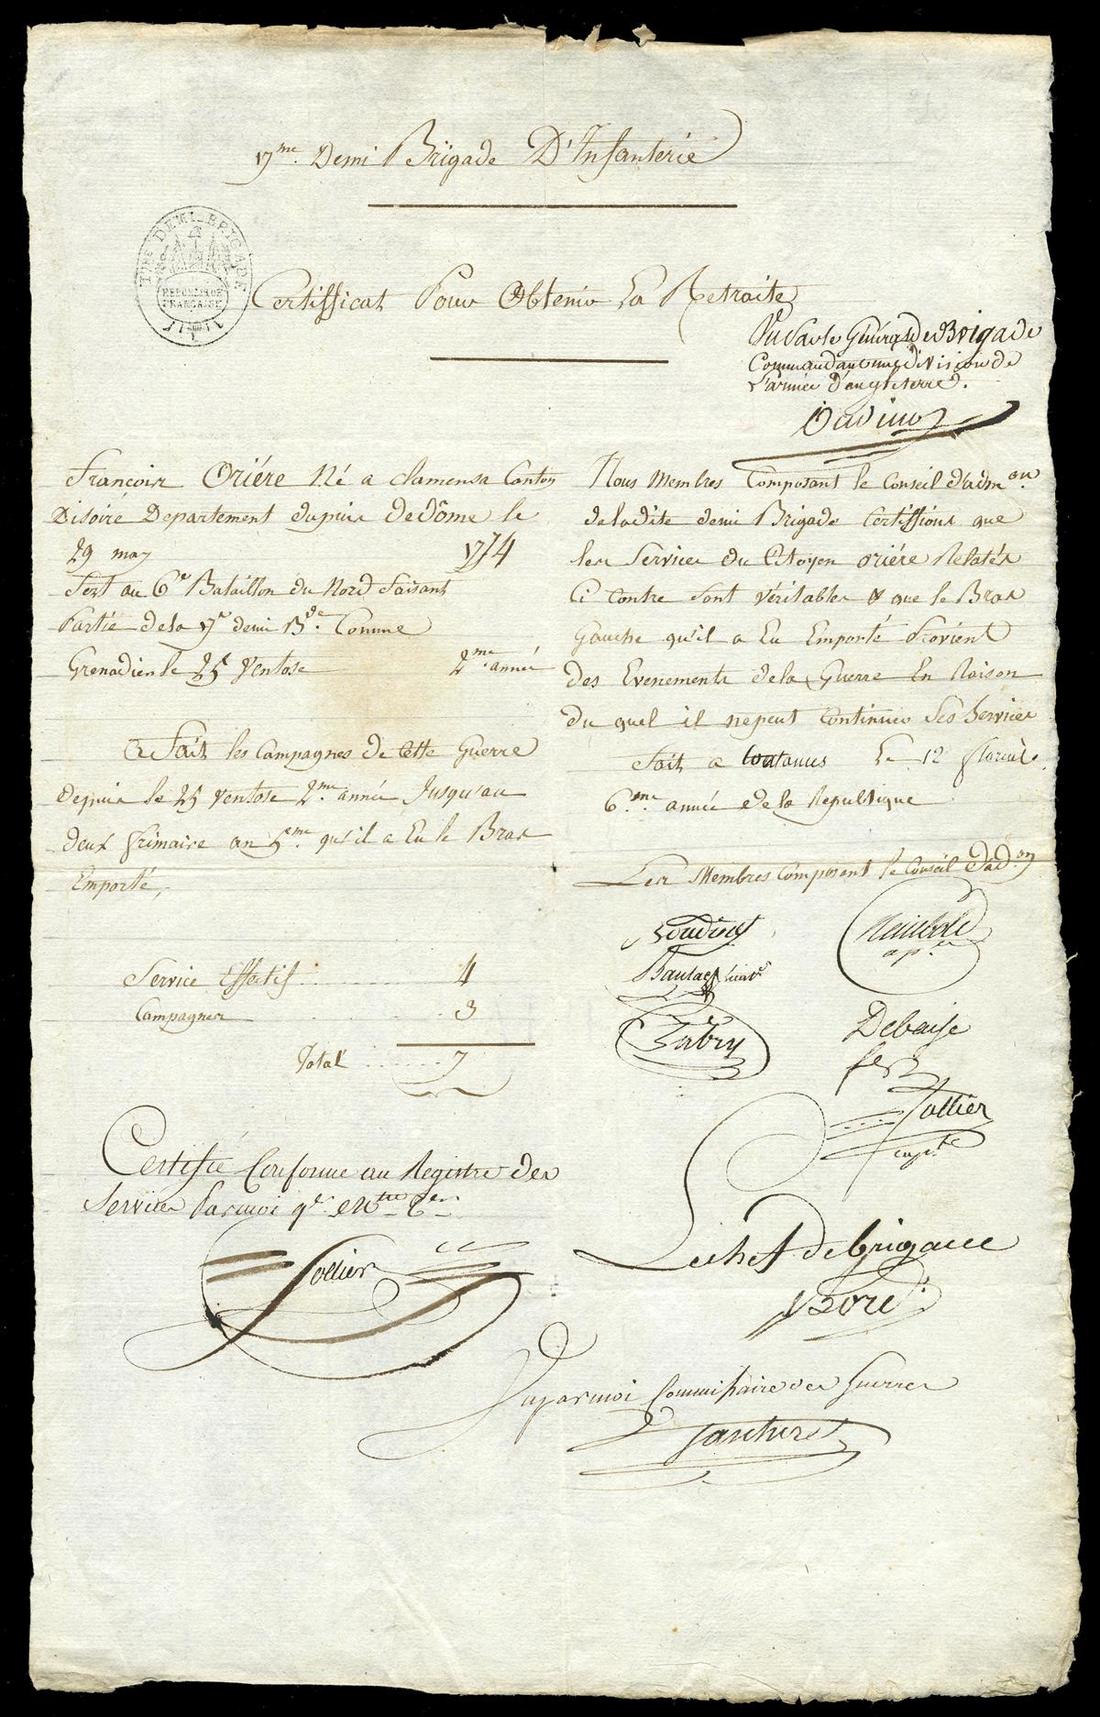 17me. Demi Brigade D'Infanterie
REPUBLIQUE
FRANCAISE
Certifficat Pour Obtenir La Retraite
Vu Par le Général de Brigade
Commandant une division de
l'armée d'angleterre.
Oudinot
François Oriére Né a clamensa Canton
Disoire Departement dupuis dedôme le
29 may 1774
Sert au 6e Bataillon du Nord faisant
Partie dela 17e demi Bde. Comme
Grenadier le 25 Ventose 2me. année
A Fait les Campagnes de Cette Guerre
depuis le 25 Ventose 2me. année Jusqu'au
deux frimaire an 5me. qu'il a Eu le Bras
Emporté,
Service Effectif 4
Campagnes 3
Total 7
Certifié Conforme au Registre des
Services Par moi
Sollier
Nous Membres Composant le Conseil d'admon
deladite demi Brigade Certiffions que
les Services du Citoyen oriére Relatés
Ci Contre Sont Véritables & que le Bras
Gauche qu'il a Eu Emporté Provient
des Evenements dela Guerre En Raison
du quel il nepeut Continuer Ses Services
Fait a le 12 floreal.
6.me année de la Republique
Les Membres Composant le Conseil d'adon
Fabry
Debaise
Sollier
capne
Le chef de brigade
Vu par moi Commissaire des Guerres